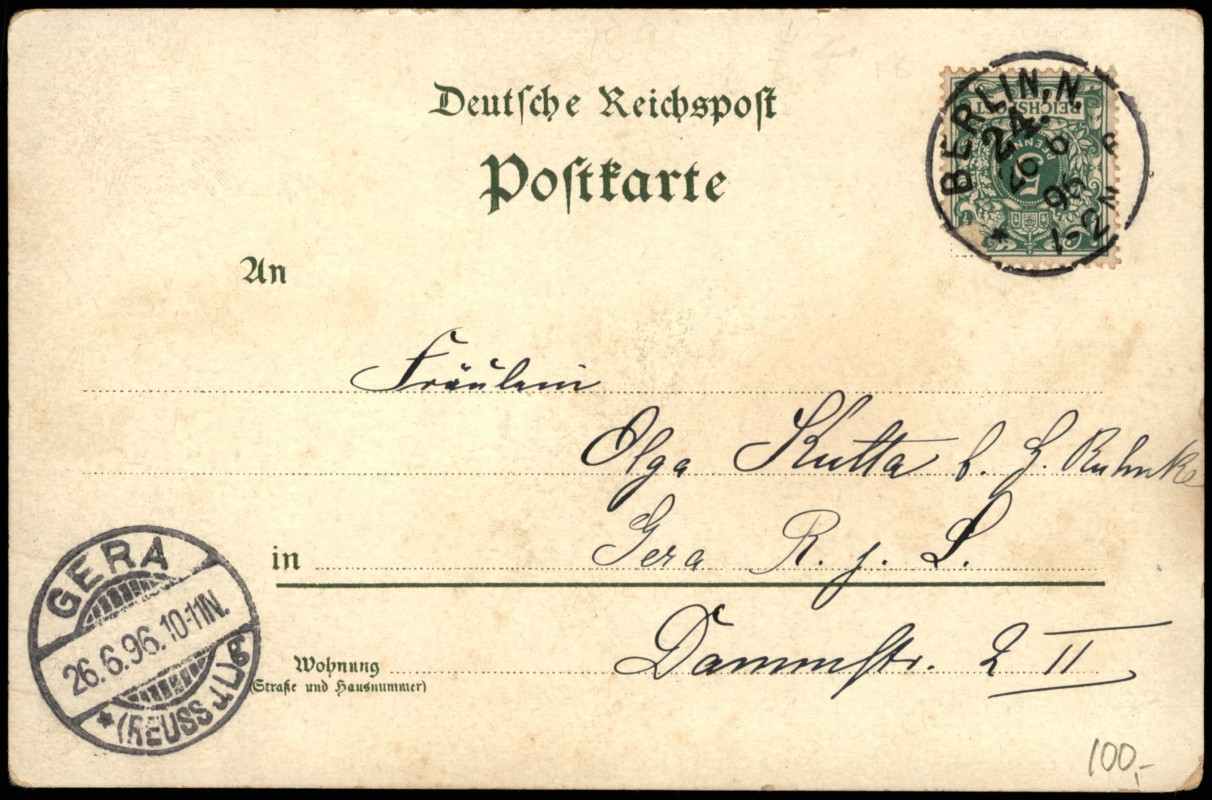 Deutsche Reichspost
Postkarte
BERLIN, N.
24.
26 6
96
1-2 N
*
REICHSPOST
5
PFENNIG
An
Fräulein
Olga Kutta b. H. Ruhnke
in Gera R. j. L.
Wohnung Dammstr. 2 II
(Straße und Hausnummer)
GERA
26.6.96.10-11N.
*(REUSS J.L.)g
100,-